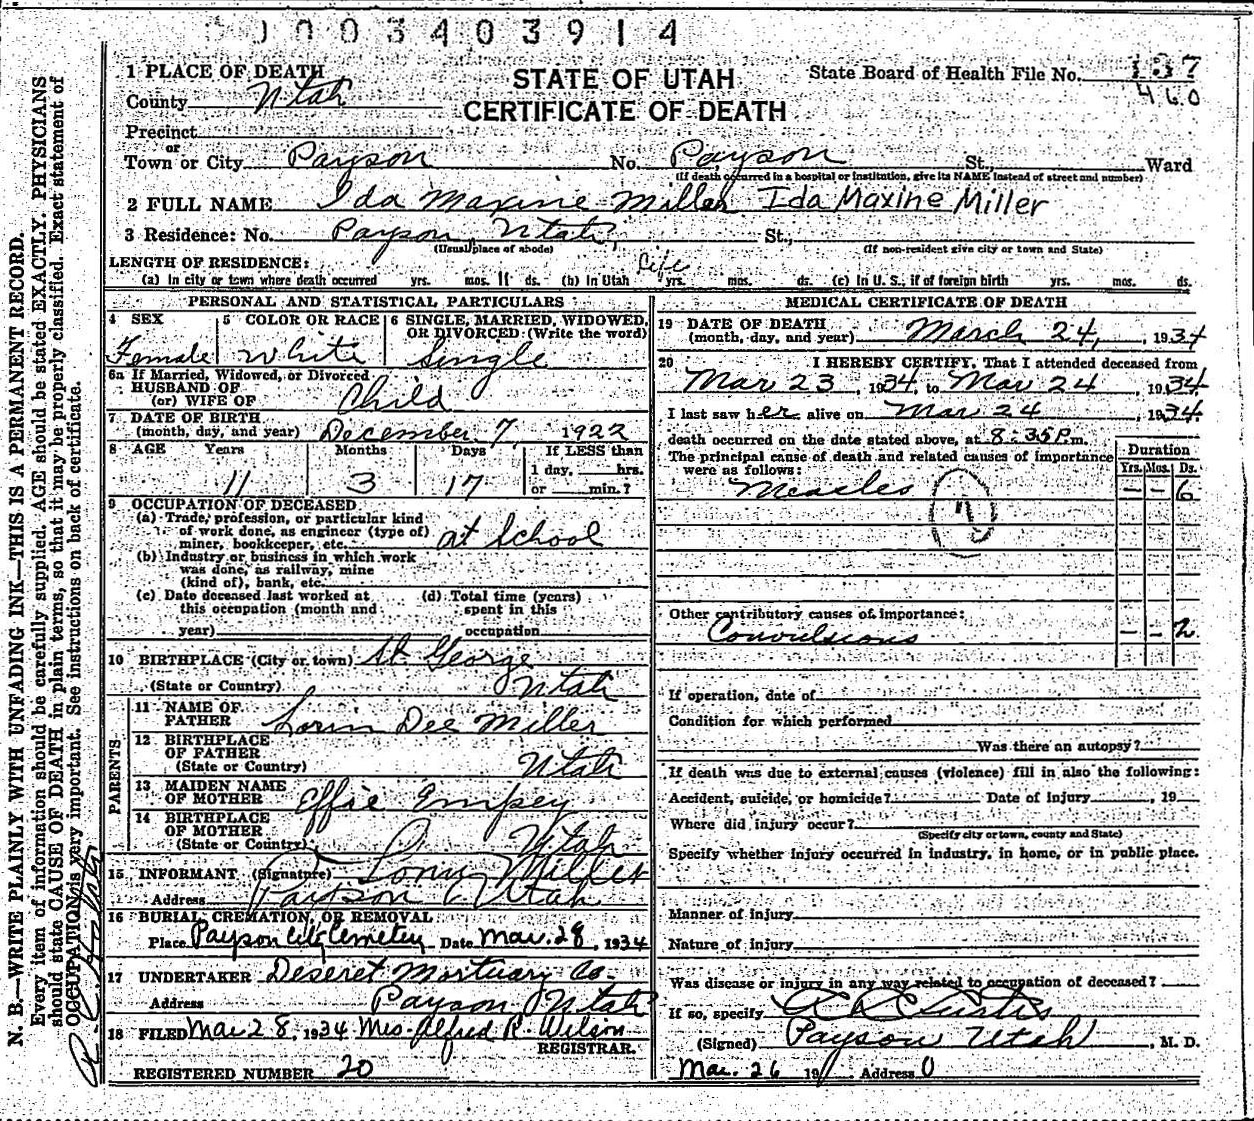 0003403914
1 PLACE OF DEATH
STATE OF UTAH
State Board of Health File No. 137
County Utah
CERTIFICATE OF DEATH
460
Precinct
or
Town or City Payson No. Payson St., Ward
(If death occurred in a hospital or institution, give its NAME instead of street and number)
2 FULL NAME Ida Maxine Miller Ida Maxine Miller
3 Residence: No. Payson, Utah, St.,
(Usual place of abode) (If non-resident give city or town and State)
LENGTH OF RESIDENCE:
(a) In city or town where death occurred yrs. mos. 11 ds. (b) In Utah Life yrs. mos. ds. (c) In U. S., if of foreign birth yrs. mos. ds.
PERSONAL AND STATISTICAL PARTICULARS
4 SEX 5 COLOR OR RACE 6 SINGLE, MARRIED, WIDOWED,
OR DIVORCED: (Write the word)
Female White Single
6a If Married, Widowed, or Divorced
HUSBAND OF
(or) WIFE OF Child
7 DATE OF BIRTH
(month, day, and year) December 7, 1922
8 AGE Years Months Days If LESS than
1 day, hrs.
11 3 17 or min. ?
9 OCCUPATION OF DECEASED
(a) Trade, profession, or particular kind
of work done, as engineer (type of)
miner, bookkeeper, etc. at School
(b) Industry or business in which work
was done, as railway, mine
(kind of), bank, etc.
(c) Date deceased last worked at (d) Total time (years)
this occupation (month and spent in this
year) occupation
10 BIRTHPLACE (City or town) St. George
(State or Country) Utah
PARENTS
11 NAME OF
FATHER Lorin Dee Miller
12 BIRTHPLACE
OF FATHER
(State or Country) Utah
13 MAIDEN NAME
OF MOTHER Effie Empey
14 BIRTHPLACE
OF MOTHER
(State or Country) Utah
15 INFORMANT (Signature) Miller
Address Payson Utah
16 BURIAL, CREMATION, OR REMOVAL
Place Payson City Cemetery Date Mar. 28, 1934
17 UNDERTAKER Deseret Mortuary Co.
Address Payson Utah
18 FILED Mar 28, 1934 Mrs. Alfred R. Wilson
REGISTRAR.
REGISTERED NUMBER 20
MEDICAL CERTIFICATE OF DEATH
19 DATE OF DEATH
(month, day, and year) March 24, , 1934
20 I HEREBY CERTIFY, That I attended deceased from
Mar 23, 1934, to Mar 24, 1934
I last saw her alive on Mar 24, 1934
death occurred on the date stated above, at 8:35 P.m.
The principal cause of death and related causes of importance
were as follows:
Duration
Yrs. Mos. Ds.
Measles — — 6
7
Other contributory causes of importance:
Convulsions — — 2
If operation, date of
Condition for which performed
Was there an autopsy?
If death was due to external causes (violence) fill in also the following:
Accident, suicide, or homicide? Date of injury , 19
Where did injury occur?
(Specify city or town, county and State)
Specify whether injury occurred in industry, in home, or in public place.
Manner of injury
Nature of injury
Was disease or injury in any way related to occupation of deceased?
If so, specify Curtis
(Signed) Payson Utah , M. D.
Mar. 26 19 Address
N. B.—WRITE PLAINLY WITH UNFADING INK—THIS IS A PERMANENT RECORD.
Every item of information should be carefully supplied. AGE should be stated EXACTLY. PHYSICIANS
should state CAUSE OF DEATH in plain terms, so that it may be properly classified. Exact statement of
OCCUPATION is very important. See instructions on back of certificate.